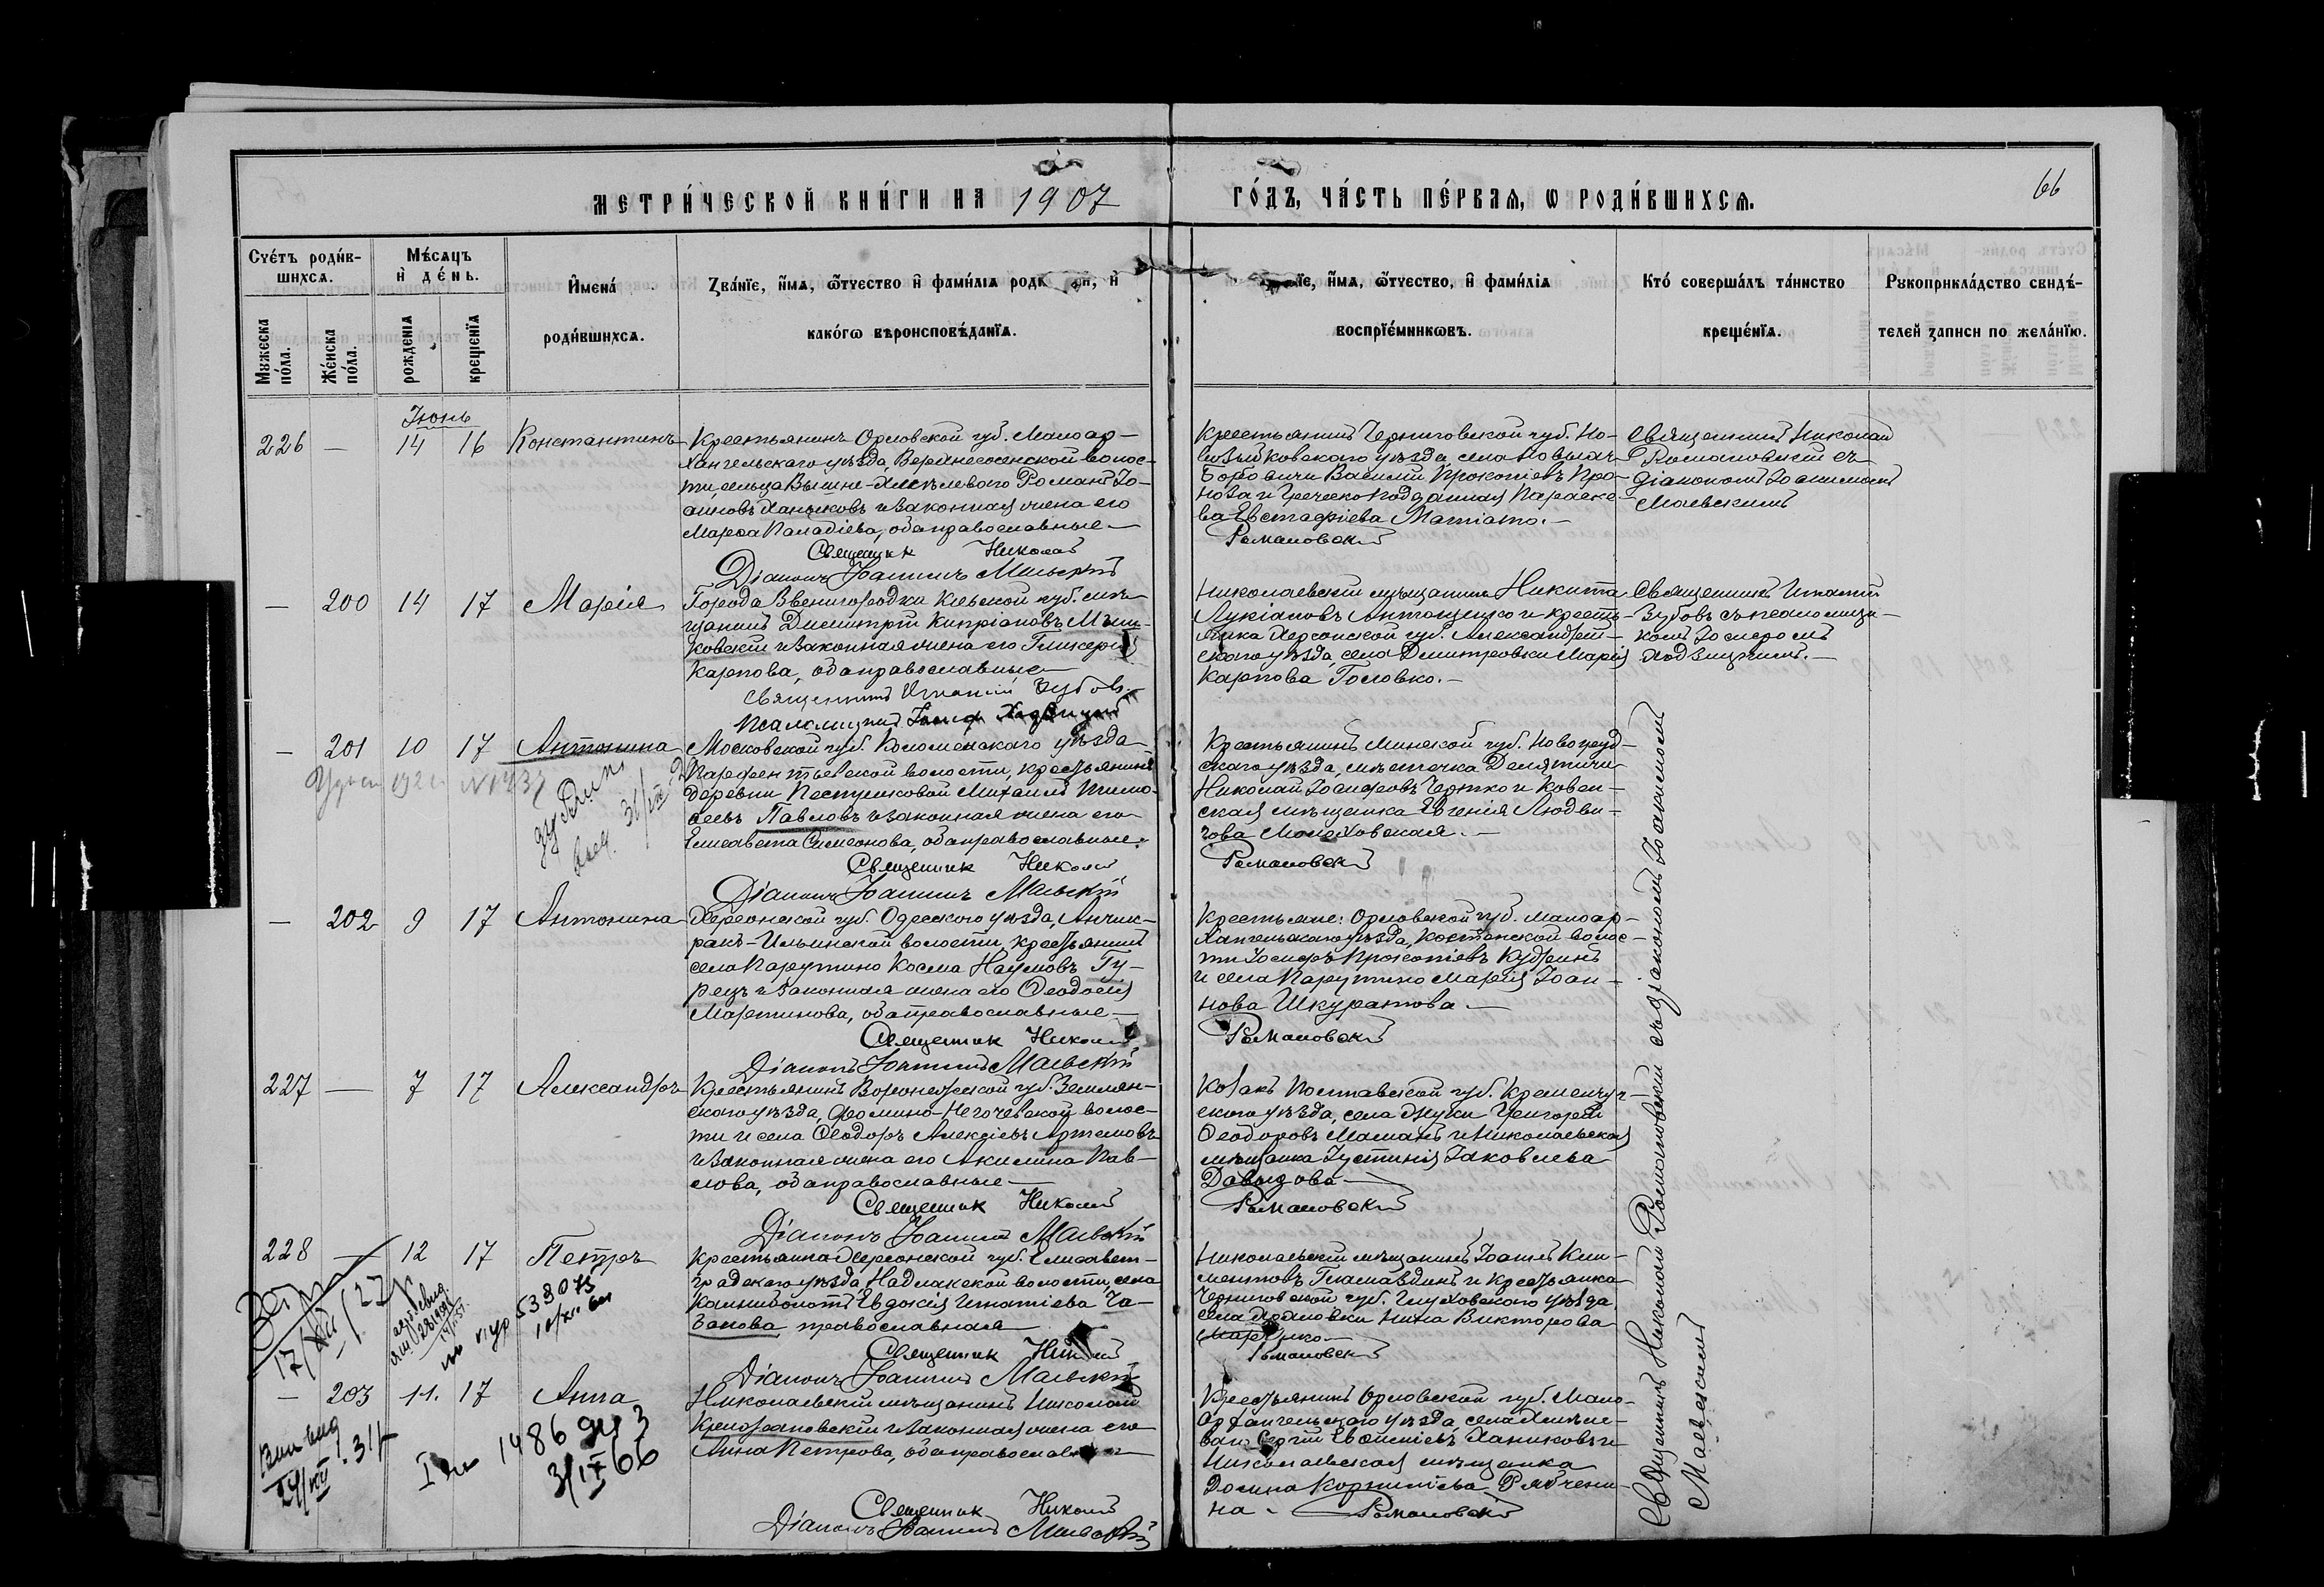 МЕТРИ́ЧЕСКОЙ КНИ́ГИ НА 1907 ГО́ДЪ, ЧА́СТЬ ПЕ́РВАЯ, Ѡ РОДИ́ВШИХСЯ.
66
Сче́тъ роди́в-
шихся.
Мѣ́сяцъ
и де́нь.
Имена́
роди́вшихся.
Зва́нїе, и́мя, ѻ́тчество и фами́лїя и
како́гѡ вѣроисповѣ́данїя.
и́мя, ѻ́тчество, и фами́лїя
воспрїе́мникѡвъ.
Кто́ соверша́лъ та́инство
креще́нїя.
Рукоприкла́дство свидѣ́-
телей записи по жела́нїю.
Мужеска по́ла.
Же́нска по́ла.
рожденїя
крещенїя
Іюнь
226 — 14 16 Константинъ
Крестьянинъ Орловской губ. Малоар-
хангельскаго уѣзда, Верхнесосенской волос-
ти, сельца Вышне- Романъ Іо-
анновъ Ханыковъ и законная жена его
Марѳа Паладіева, оба православные —
Священник Николай
Романовскій
Діаконъ Іоаннъ Маевскій
Крестьянинъ Черниговской губ. Но-
возыбковскаго уѣзда, села Новыхъ-
Бобовичи Василій Прокопіевъ Про-
нова и Греческо-подданная Параске-
ва Евстафіева Матіато. —
Священникъ Николай
Романовскій съ
діакономъ Іоанномъ
Маевскимъ
— 200 14 17 Марія
Города Звенигородки Кіевской губ. мѣ-
щанинъ Димитрій Кипріановъ
ковскій и законная жена его Гликерія
Карпова, оба православные —
Священникъ Игнатій Зубовъ
Псаломщикъ
Николаевскій мѣщанинъ Никита
Лукіановъ Антощенко и кресть-
янка Херсонской губ. Александрій-
скаго уѣзда, села Димитровки Марія
Карпова Головко. —
Священникъ Игнатій
Зубовъ съ псаломщи-
комъ Іосифомъ
— 201 10 17 Антонина
Московской губ. Коломенскаго уѣзда
Парфентьевской волости, крестьянинъ
деревни Пестриковой Михаилъ Тимо-
ѳеевъ Павловъ и законная жена его
Елисавета Симеонова, оба православные.
Священник Николай
Романовскій
Діаконъ Іоаннъ Маевскій
Крестьянинъ Минской губ. Новогруд-
скаго уѣзда, мѣстечка Делятичи
Николай Іосифовъ Чертко и Ковен-
ская мѣщанка Евгенія Людви-
гова —
— 202 9 17 Антонина
Херсонской губ. Одесскаго уѣзда, Анчик-
ракъ-Ильинской волости, крестьянинъ
села Парутино Косма Наумовъ Гу-
рецъ и законная жена его Ѳеодосія
Мартинова, оба православные —
Священник Николай
Романовскій
Діаконъ Іоаннъ Маевскій
Крестьяне: Орловской губ. Малоар-
хангельскаго уѣзда, Костенской волос-
ти Іосифъ Прокопіевъ Кудринъ
и села Парутино Марія Іоан-
нова Шкуратова. —
227 — 7 17 Александръ
Крестьянинъ Воронежской губ. Землян-
скаго уѣзда, Фомино-Негочевской волос-
ти и села Ѳеодоръ Алексіевъ Артемовъ
и законная жена его Акилина Пав-
лова, оба православные —
Священник Николай
Романовскій
Діаконъ Іоаннъ Маевскій
Козакъ Полтавской губ. Кременчуг-
скаго уѣзда, села Григорій
Ѳеодоровъ и Николаевская
мѣщанка Іустинія Іаковлева
Давыдова —
228 — 12 17 Петръ
Крестьянка Херсонской губ. Елисавет-
градскаго уѣзда, Надлакской волости, села
Евдокія Игнатіева Ча-
банова православная —
Священник Николай
Романовскій
Діаконъ Іоаннъ Маевскій
Николаевскій мѣщанинъ Іоаннъ Кли-
ментовъ и крестьянка
Черниговской губ. Глуховскаго уѣзда,
села Нина Викторова
— 203 11. 17 Анна
Николаевскій мѣщанинъ Николай
и законная жена его
Анна Петрова, оба православные
Священник Николай
Романовскій
Діаконъ Іоаннъ Маевскій
Крестьянинъ Орловской губ. Мало-
архангельскаго уѣзда села
Сергій Ханиковъ и
Николаевская мѣщанка
Домна Корниліева Рябчени-
на.
Священникъ Николай Романовскій съ діакономъ Іоанномъ
Маевскимъ